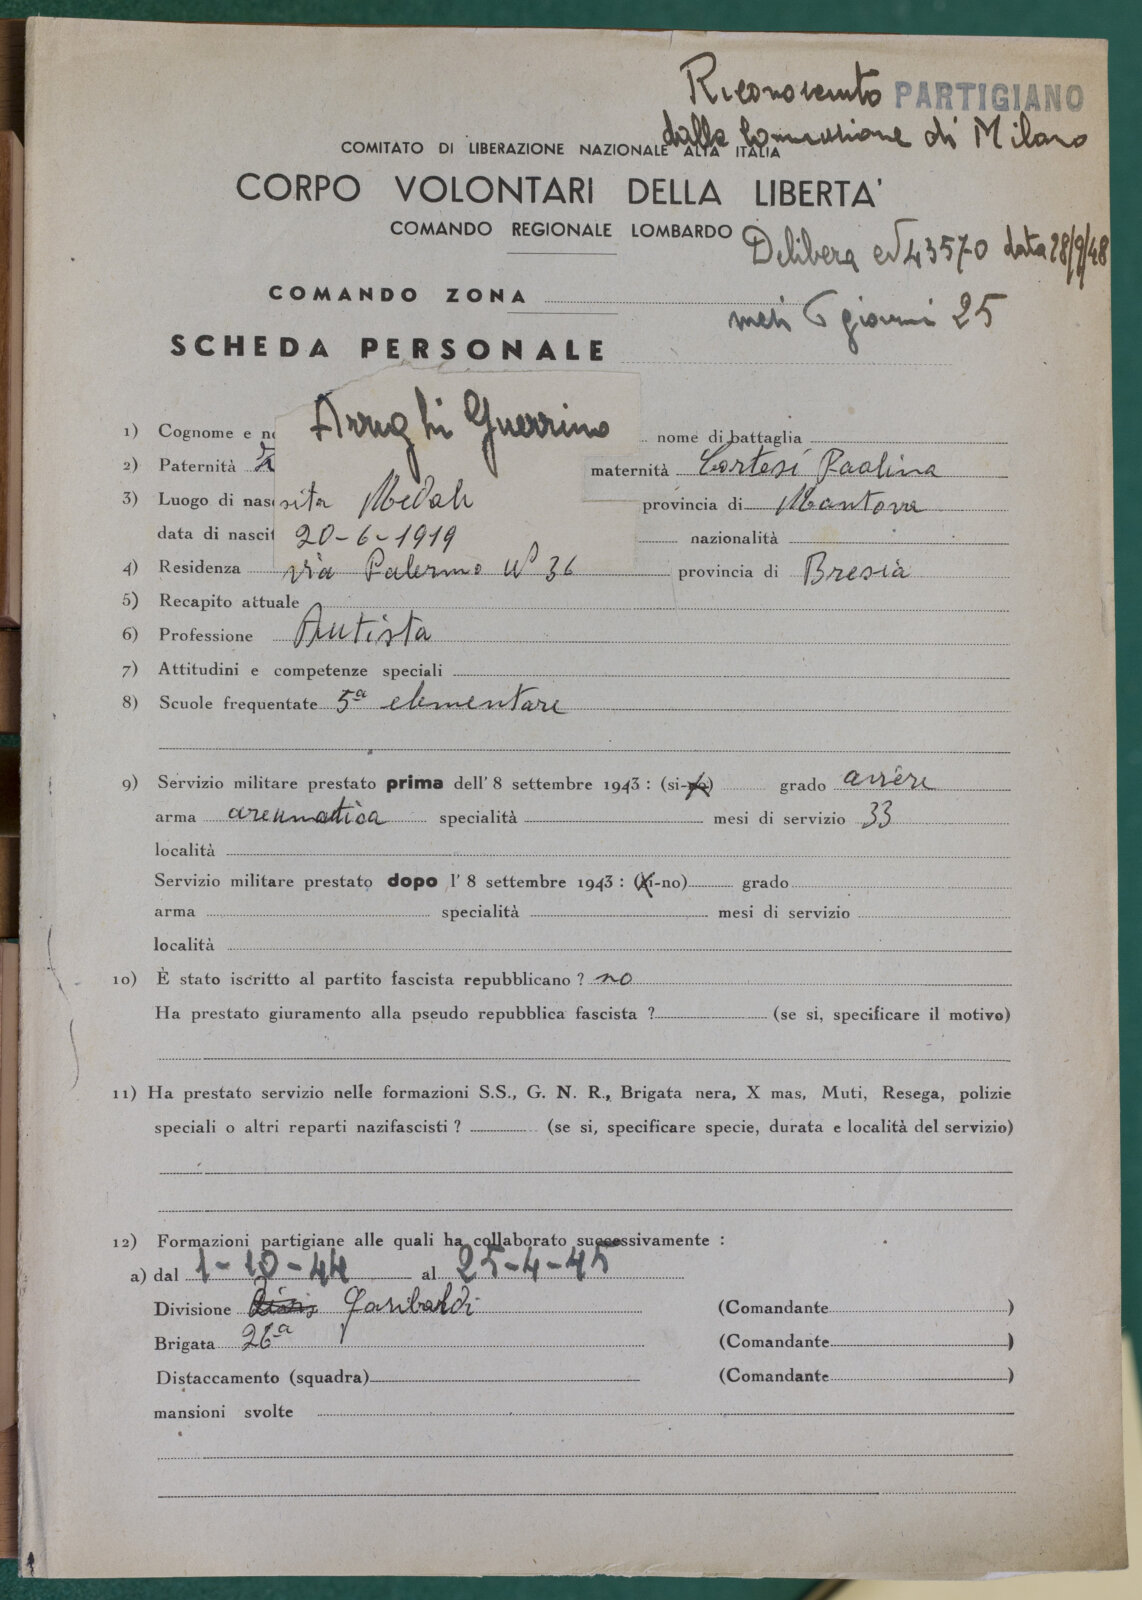 Riconosciuto PARTIGIANO
dalla Commissione di Milano
COMITATO DI LIBERAZIONE NAZIONALE ALTA ITALIA
CORPO VOLONTARI DELLA LIBERTA'
COMANDO REGIONALE LOMBARDO
Delibera N 43570 data 28/9/48
COMANDO ZONA
mesi 6 giorni 25
SCHEDA PERSONALE
Arrighi Guerrino
1) Cognome e no nome di battaglia
2) Paternità maternità Cortesi Paolina
3) Luogo di nascita Medole provincia di Mantova
data di nascit 20-6-1919 nazionalità
4) Residenza via Palermo N° 36 provincia di Brescia
5) Recapito attuale
6) Professione Autista
7) Attitudini e competenze speciali
8) Scuole frequentate 5ª elementare
9) Servizio militare prestato prima dell' 8 settembre 1943 : (si-no) grado aviere
arma areunatica specialità mesi di servizio 33
località
Servizio militare prestato dopo l' 8 settembre 1943 : (si-no) grado
arma specialità mesi di servizio
località
10) È stato iscritto al partito fascista repubblicano ? no
Ha prestato giuramento alla pseudo repubblica fascista ? (se si, specificare il motivo)
11) Ha prestato servizio nelle formazioni S.S., G. N. R., Brigata nera, X mas, Muti, Resega, polizie
speciali o altri reparti nazifascisti ? (se si, specificare specie, durata e località del servizio)
12) Formazioni partigiane alle quali ha collaborato successivamente :
a) dal 1-10-44 al 25-4-45
Divisione Garibaldi (Comandante )
Brigata 26ª (Comandante )
Distaccamento (squadra) (Comandante )
mansioni svolte